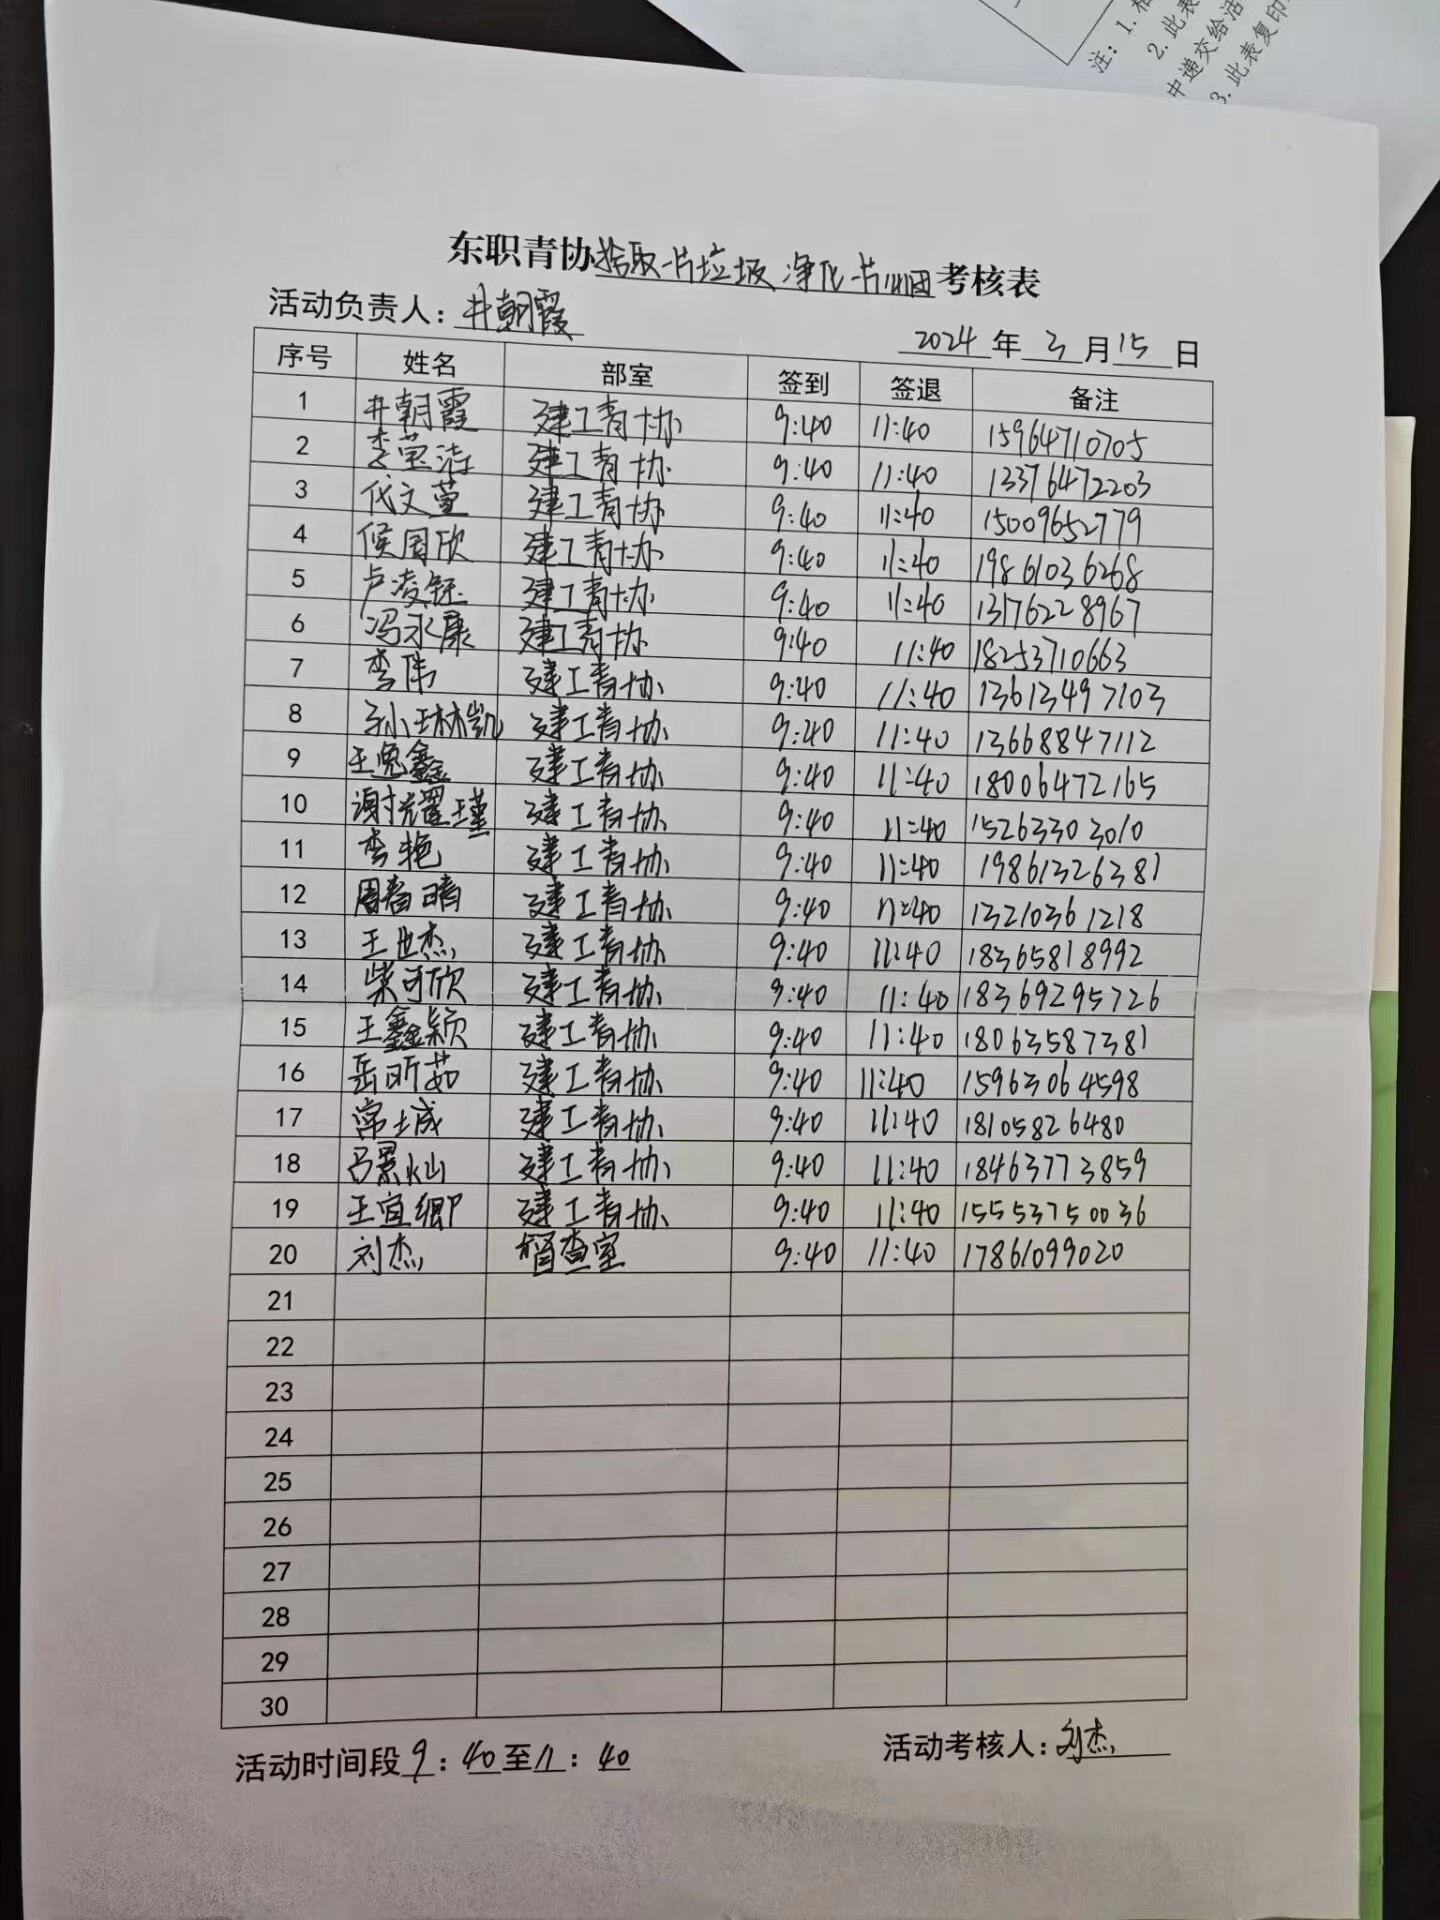 注：1. 相
2. 此表
中递交给活
3. 此表复印
东职青协拾取一片垃圾 净化一片心田考核表
活动负责人：井朝霞
2024 年 3 月 15 日
序号 姓名 部室 签到 签退 备注
1 井朝霞 建工青协 9:40 11:40 15964710705
2 李莹涛 建工青协 9:40 11:40 13376472203
3 代文萱 建工青协 9:40 11:40 15009652779
4 侯国欣 建工青协 9:40 11:40 19861036268
5 卢凌钰 建工青协 9:40 11:40 13176228967
6 冯永康 建工青协 9:40 11:40 18253710663
7 李伟 建工青协 9:40 11:40 13613497103
8 孙琳凯 建工青协 9:40 11:40 13668847112
9 王冕鑫 建工青协 9:40 11:40 18006472165
10 谢耀瑾 建工青协 9:40 11:40 15263303010
11 李艳 建工青协 9:40 11:40 19861326381
12 周春晴 建工青协 9:40 11:40 13210361218
13 王世杰 建工青协 9:40 11:40 18365818992
14 柴可欣 建工青协 9:40 11:40 18369295726
15 王鑫颖 建工青协 9:40 11:40 18063587381
16 岳昕茹 建工青协 9:40 11:40 15963064598
17 常士成 建工青协 9:40 11:40 18105826480
18 吕景灿 建工青协 9:40 11:40 18463773859
19 王宜卿 建工青协 9:40 11:40 15553750036
20 刘杰 督查室 9:40 11:40 17861099020
21
22
23
24
25
26
27
28
29
30
活动时间段 9：40至11：40
活动考核人：刘杰